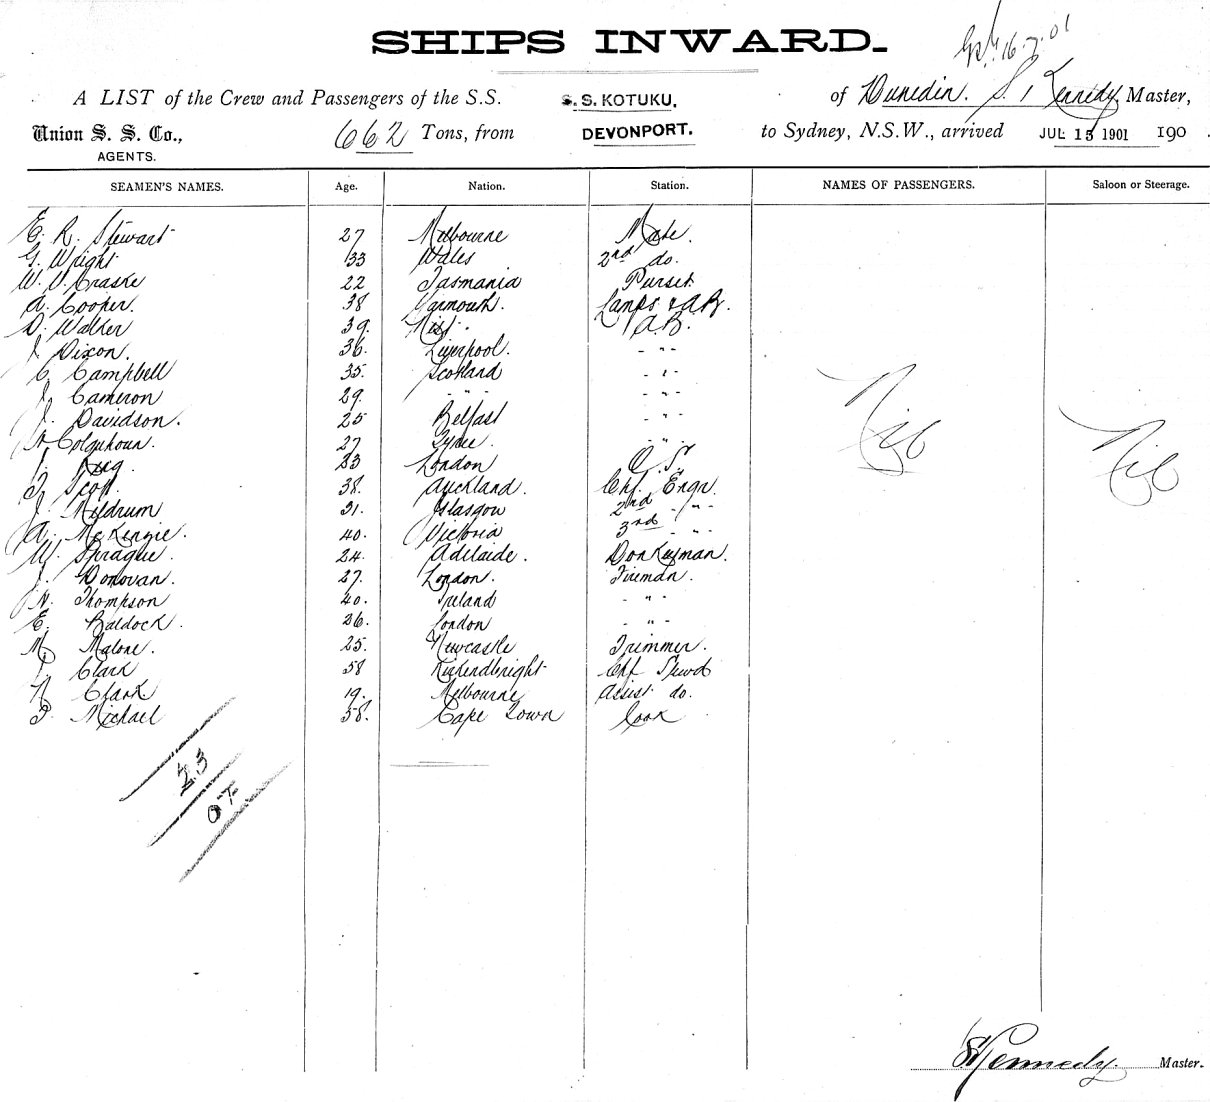 SHIPS INWARD.
16.7.01
A LIST of the Crew and Passengers of the S.S. S.S. KOTUKU, of Dunedin. S. Kennedy, Master,
Union S. S. Co., 662 Tons, from DEVONPORT. to Sydney, N.S.W., arrived JUL 15 1901 190 .
AGENTS.
SEAMEN'S NAMES. Age. Nation. Station. NAMES OF PASSENGERS. Saloon or Steerage.
E. R. Stewart 27 Melbourne Mate.
G. Wright 33 Wales 2nd do.
W. V. Craske 22 Tasmania Purser
A. Cooper. 38 Yarmouth. Lamps & A.B.
D. Walker 39. A.B.
J. Dixon. 36. Liverpool. - " -
C. Campbell 35. Scotland - " -
J. Cameron 29. - " - - " -
J. Davidson. 25 Belfast - " -
Colquhoun. 27 - " -
33 London O. S.
Scott. 38. Auckland. Chf. Engr.
J. Meldrum 31. Glasgow 2nd - " -
A. McKenzie. 40. Victoria 3rd - " -
W. Sprague. 24. Adelaide. Donkeyman.
J. Donovan. 27. London. Fireman.
H. Thompson 40. Ireland - " -
E. Baldock. 26. London - " -
M. Malone. 25. Newcastle Trimmer.
Clark 58 Kirkendbright Chf Stewd
Clark 19. Melbourne Assist. do.
Michael 58. Cape Town Cook
Nil
Nil
23
OT
S Kennedy. Master.